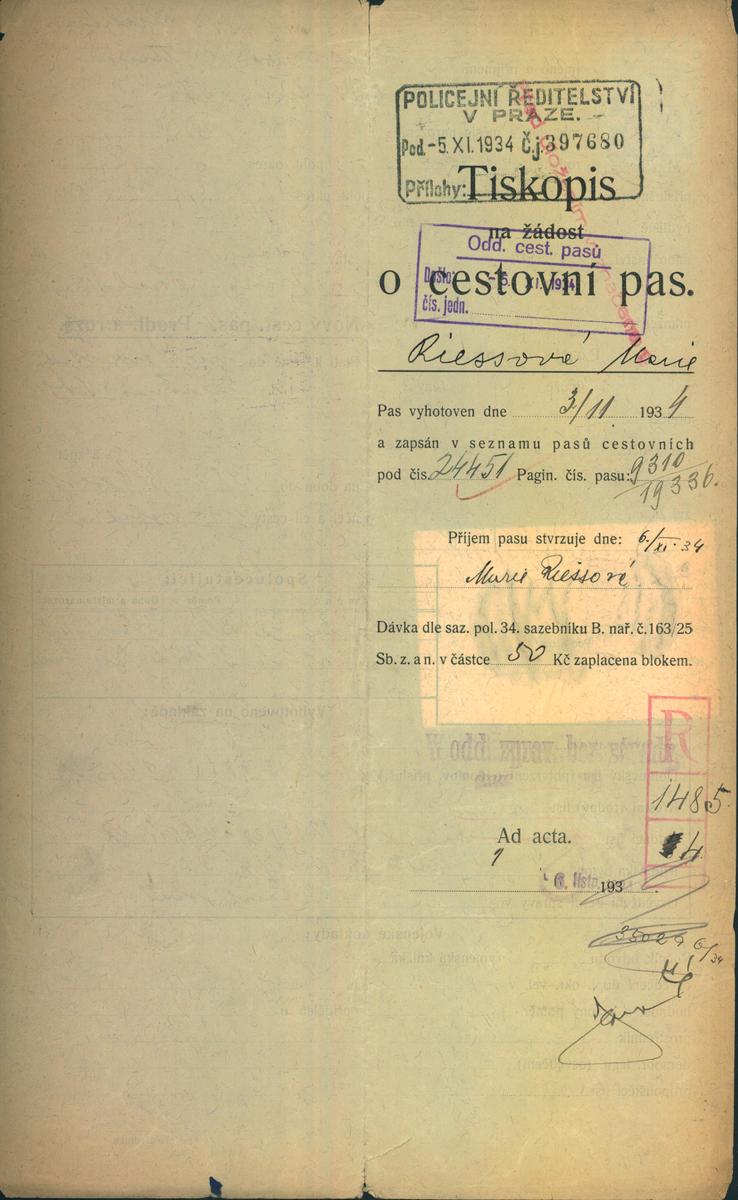 POLICEJNÍ ŘEDITELSTVÍ
V PRAZE.
Pod. -5.XI.1934 Č.j. 397680
Přílohy:
Tiskopis
na žádost
Odd. cest. pasů
Došlo: -5. XI. 1934
o cestovní pas.
čís. jedn.
Riessová Marie
Pas vyhotoven dne 3/11 1934
a zapsán v seznamu pasů cestovních
pod čís. 24451 Pagin. čís. pasu: 9310
19336.
Příjem pasu stvrzuje dne: 6./XI. 34
Marie Riessová
Dávka dle saz. pol. 34. sazebníku B. nař. č. 163/25
Sb. z. a n. v částce 50 Kč zaplacena blokem.
R
1485.
4
Ad acta.
6. listo. 193
6/34